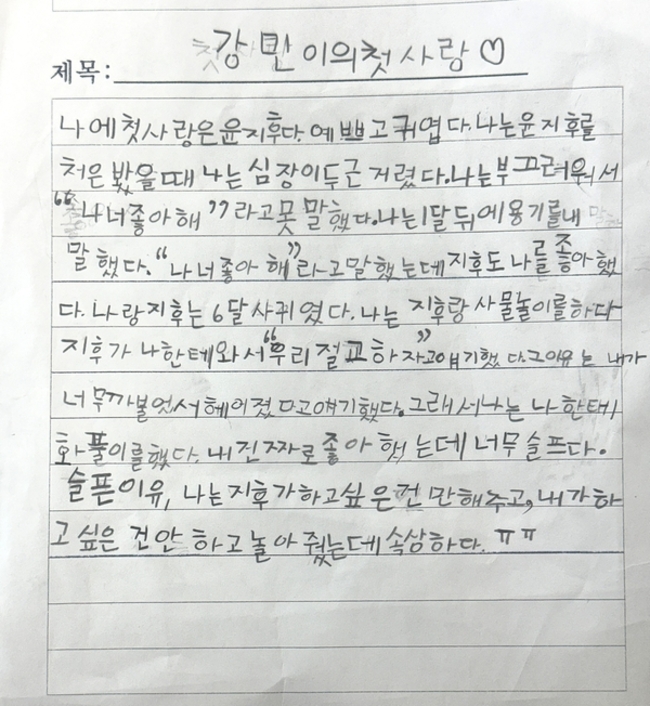 제목: 강민이의첫사랑♡
나에첫사랑은윤지후다. 예쁘고귀엽다.나는윤지후를
처은봤을때나는심장이두근거렸다.나는부끄러워서
“나너좋아해”라고못말했다.나는1달뒤에용기를내
말했다.“나너좋아해”라고말했는데지후도나를좋아했
다.나랑지후는6달사귀였다.나는 지후랑사물놀이를하다
지후가나한테와서“우리절교하자”고얘기했다.그이유는 내가
너무까불엇서헤어졌다고얘기했다.그래서나는나한태
화풀이를했다.내진짜로좋아햇는데너무슬프다.
슬픈이유, 나는지후가하고싶은건만해주고,내가하
고싶은건안하고놀아줬는데속상하다.ㅠㅠ